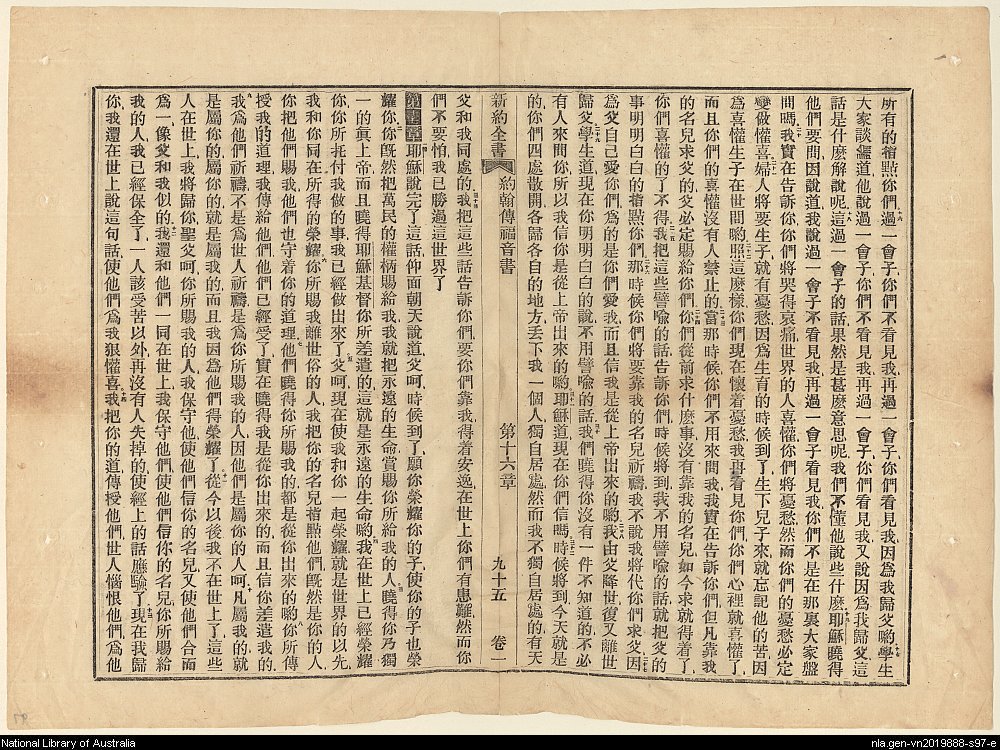 所有的指點你們、過一會子、你們不看見我、再過一會子、你們看見我、因爲我歸父喲、學生
大家談論道、他說過一會子、你們不看見我、再過一會子、你們看見我、又說因爲我歸父、這
話是什麼解說呢、這過一會子的話、果然是甚麼意思呢、我們不懂他說些什麼、耶穌曉得
他們要問、因說道、我說過一會子不看見我、再過一會子看見我、你們不是在那裏大家盤
問嗎、我實在告訴你、你們將哭得哀痛、世界的人喜懽、你們將憂愁、然而你們的憂愁必定
變做懽喜、婦人將要生子、就有憂愁、因爲生育的時候到了、生下兒子來、就忘記他的苦、因
爲喜懽生子在世間喲、照這麼樣、你們現在懷着憂愁、我再看見你們、你們心裡就喜懽了、
而且你們的喜懽、沒有人禁止的、當那時候、你們不用來問我、我實在告訴你們、但凡靠我
的名兒求父的、父必定賜給你們、你們從前求什麼事、沒有靠我的名兒、如今求就得着了、
你們喜懽的了不得、我把這些譬喻的話告訴你們、時候將到、我不用譬喻的話、就把父的
事明明白白的指點你們、那時候你們將要靠我的名兒祈禱、我不說我將代你們求父、因
爲父自己愛你們、爲的是你們愛我、而且信我是從上帝出來的喲、我由父降世、復又離世
歸父、學生道、現在你明明白白的說、不用譬喻的話、我們曉得你沒有一件不知道的、不必
有人來問你、所以我信你是從上帝出來的喲、耶穌道、現在你們信嗎、時候將到、今天就是
的、你們四處散開、各歸各自的地方、丟下我一個人獨自居處、然而我不獨自居處的、有天
新約全書 約翰傳福音書 第十六章 九十五 卷一
父和我同處的、我把這些話告訴你們、要你們靠我得着安逸、在世上你們有患難、然而你
們不要怕、我已勝過這世界了
第十七章耶穌說完了這話、仰面朝天說道、父呵、時候到了、願你榮耀你的子、使你的子也榮
耀你、你旣然把萬民的權柄賜給我、我就把永遠的生命賞賜你所給我的人、曉得你乃獨
一的眞上帝、而且曉得耶穌基督、你所差遣的、這就是永遠的生命喲、我在世上已經榮耀
你、你所托付我做的事、我已經做出來了、父呵、現在使我和你一起榮耀、就是世界的以先、
我和你同在所得的榮耀、你所賜我離世俗的人、我把你的名兒指點他們、旣然是你的人、
你把他們賜我、他們也守着你的道理、他們曉得你所賜我的、都是從你出來的喲、你所傳
授我的道理、我傳給他們、他們已經受了、實在曉得我是從你出來的、而且信你差遣我的、
我爲他們祈禱、不是爲世人祈禱、是爲你所賜我的人、因他們是屬你的人呵、凡屬我的、就
是屬你的、屬你的就是屬我的、而且我因爲他們得榮耀了、從今以後、我不在世上了、這些
人在世上、我將歸你、聖父呵、你所賜我的人、我保守他、使他們信你的名兒、又使他們合而
爲一、像父和我似的、我還和他們一同在世上、我保守他們、使他們信你的名兒、你所賜給
我的人、我已經保全了、一人該受苦以外、再沒有人失掉的、使經上的話應驗了、現在我歸
你、我還在世上說這句話、使他們爲我狠懽喜、我把你的道傳授他們、世人惱恨他們、爲他
National Library of Australia
nla.gen-vn2019888-s97-e